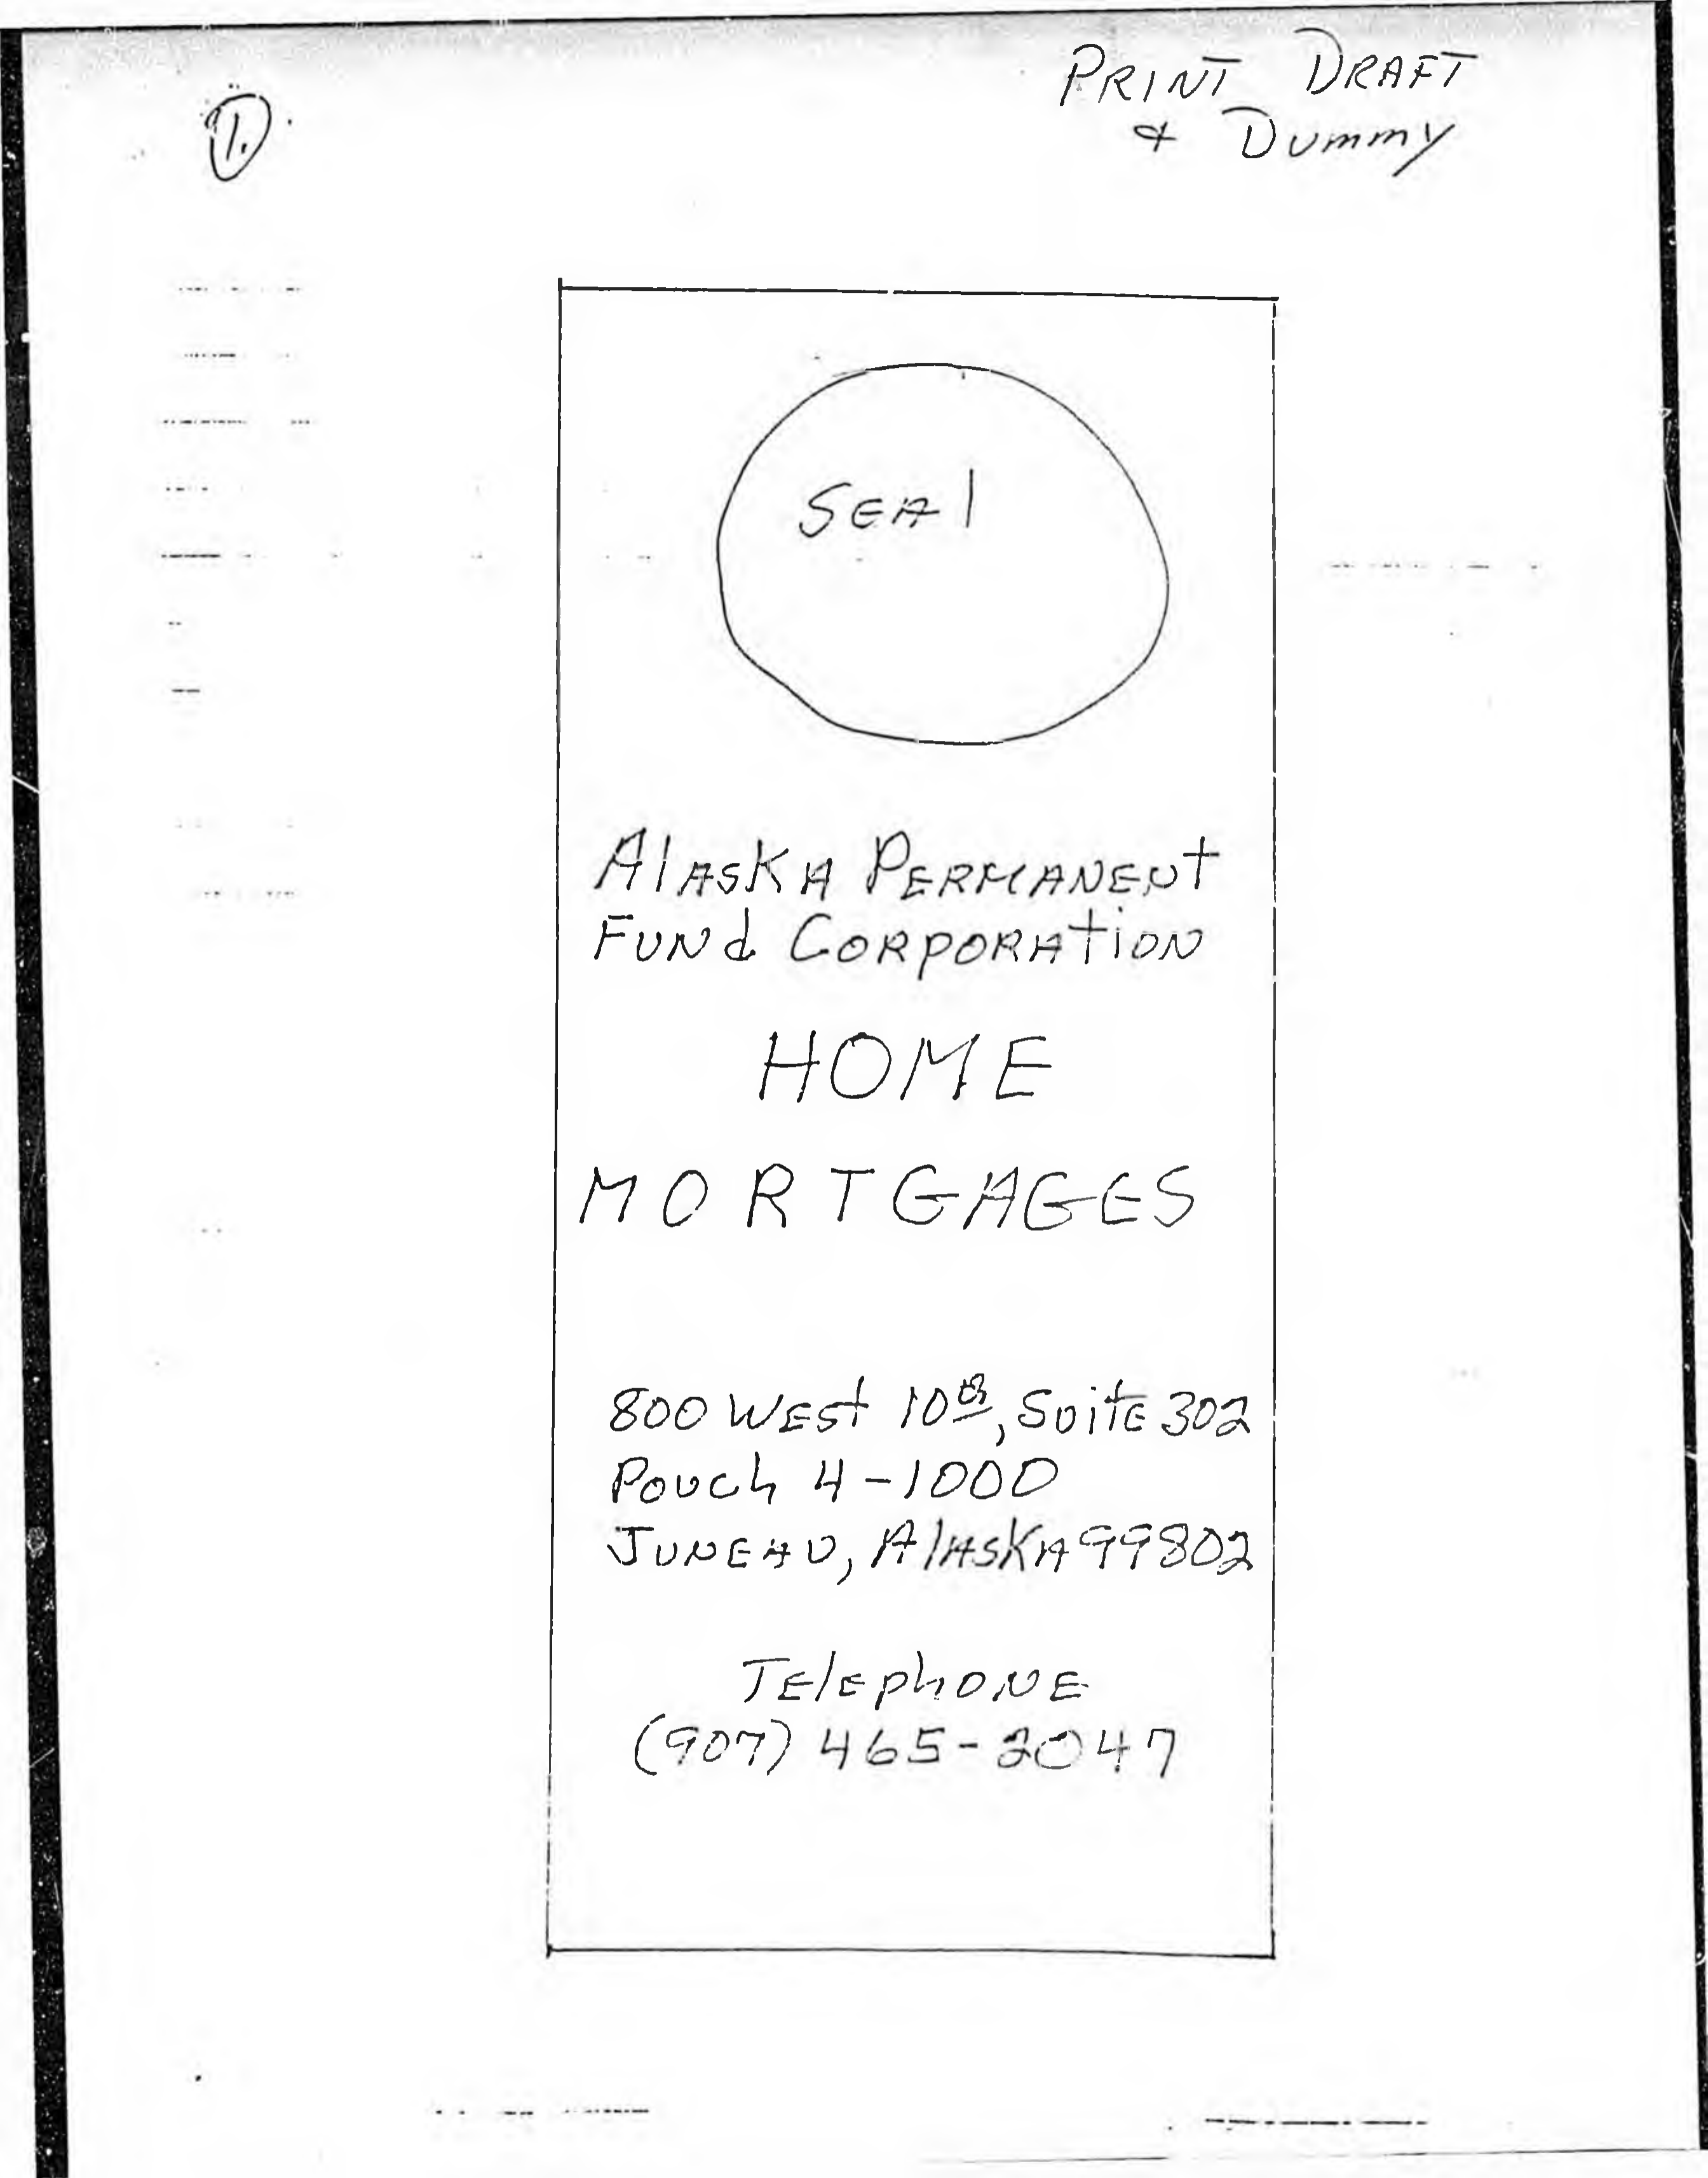 1.
PRINT DRAFT
& Dummy
SEAl
AlASKA PERMANENt
FUNd CORPORAtiON
HOME
MORTGAGES
800 WEst 10th, SuitE 302
Pouch 4-1000
JUNEAU, AlASKA 99802
TElEphONE
(907) 465-2047